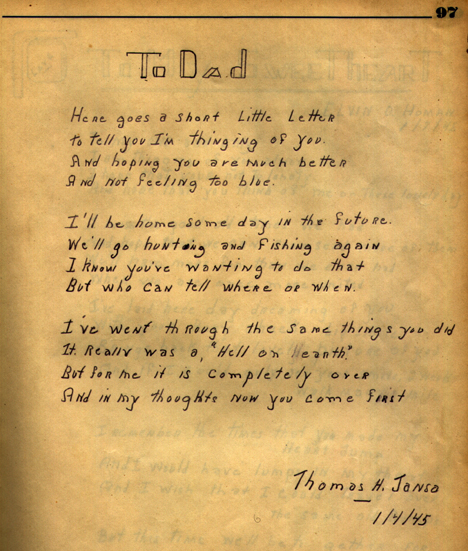 97
To Dad
Here goes a short little letter
to tell you I'm thinging of you.
And hoping you are much better
And not feeling too blue.
I'll be home some day in the future.
We'll go hunting and fishing again
I know you've wanting to do that
But who can tell where or when.
I've went through the same things you did
It really was a, "Hell on hearth."
But for me it is completely over
And in my thoughts now you come first
Thomas H. Jansa
1/4/45